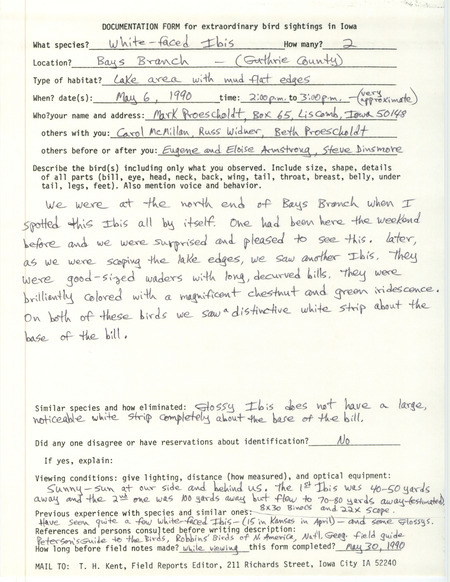 DOCUMENTATION FORM for extraordinary bird sightings in Iowa
What species? White-faced Ibis How many? 2
Location? Bays Branch - (Guthrie County)
Type of habitat? Lake area with mud flat edges
When? date(s): May 6, 1990 time: 2:00p.m. to 3:00p.m. - (very approximate)
Who?your name and address: Mark Proescholdt, Box 65, Liscomb, Iowa 50148
others with you: Carol McMillan, Russ Widner, Beth Proescholdt
others before or after you: Eugene and Eloise Armstrong, Steve Dinsmore
Describe the bird(s) including only what you observed. Include size, shape, details
of all parts (bill, eye, head, neck, back, wing, tail, throat, breast, belly, under
tail, legs, feet). Also mention voice and behavior.
We were at the north end of Bays Branch when I
spotted this Ibis all by itself. One had been here the weekend
before and we were surprised and pleased to see this. Later,
as we were scoping the lake edges, we saw another Ibis. They
were good-sized waders with long, decurved bills. They were
brilliantly colored with a magnificent chestnut and green iridescence.
On both of these birds we saw a distinctive white strip about the
base of the bill.
Similar species and how eliminated: Glossy Ibis does not have a large,
noticeable white strip completely about the base of the bill.
Did any one disagree or have reservations about identification? No
If yes, explain:
Viewing conditions: give lighting, distance (how measured), and optical equipment:
Sunny - sun at our side and behind us. The 1st Ibis was 40-50 yards
away and the 2nd one was 100 yards away but flew to 70-80 yards away - (estimated)
8x30 Binocs and 22x scope.
Previous experience with species and similar ones:
Have seen quite a few White-faced Ibis - (15 in Kansas in April) - and some Glossys.
References and persons consulted before writing description:
Peterson's Guide to the Birds, Robbins' Birds of N. America, Natl. Geog. field guide
How long before field notes made? while viewing this form completed? May 30, 1990
MAIL TO: T. H. Kent, Field Reports Editor, 211 Richards Street, Iowa City IA 52240